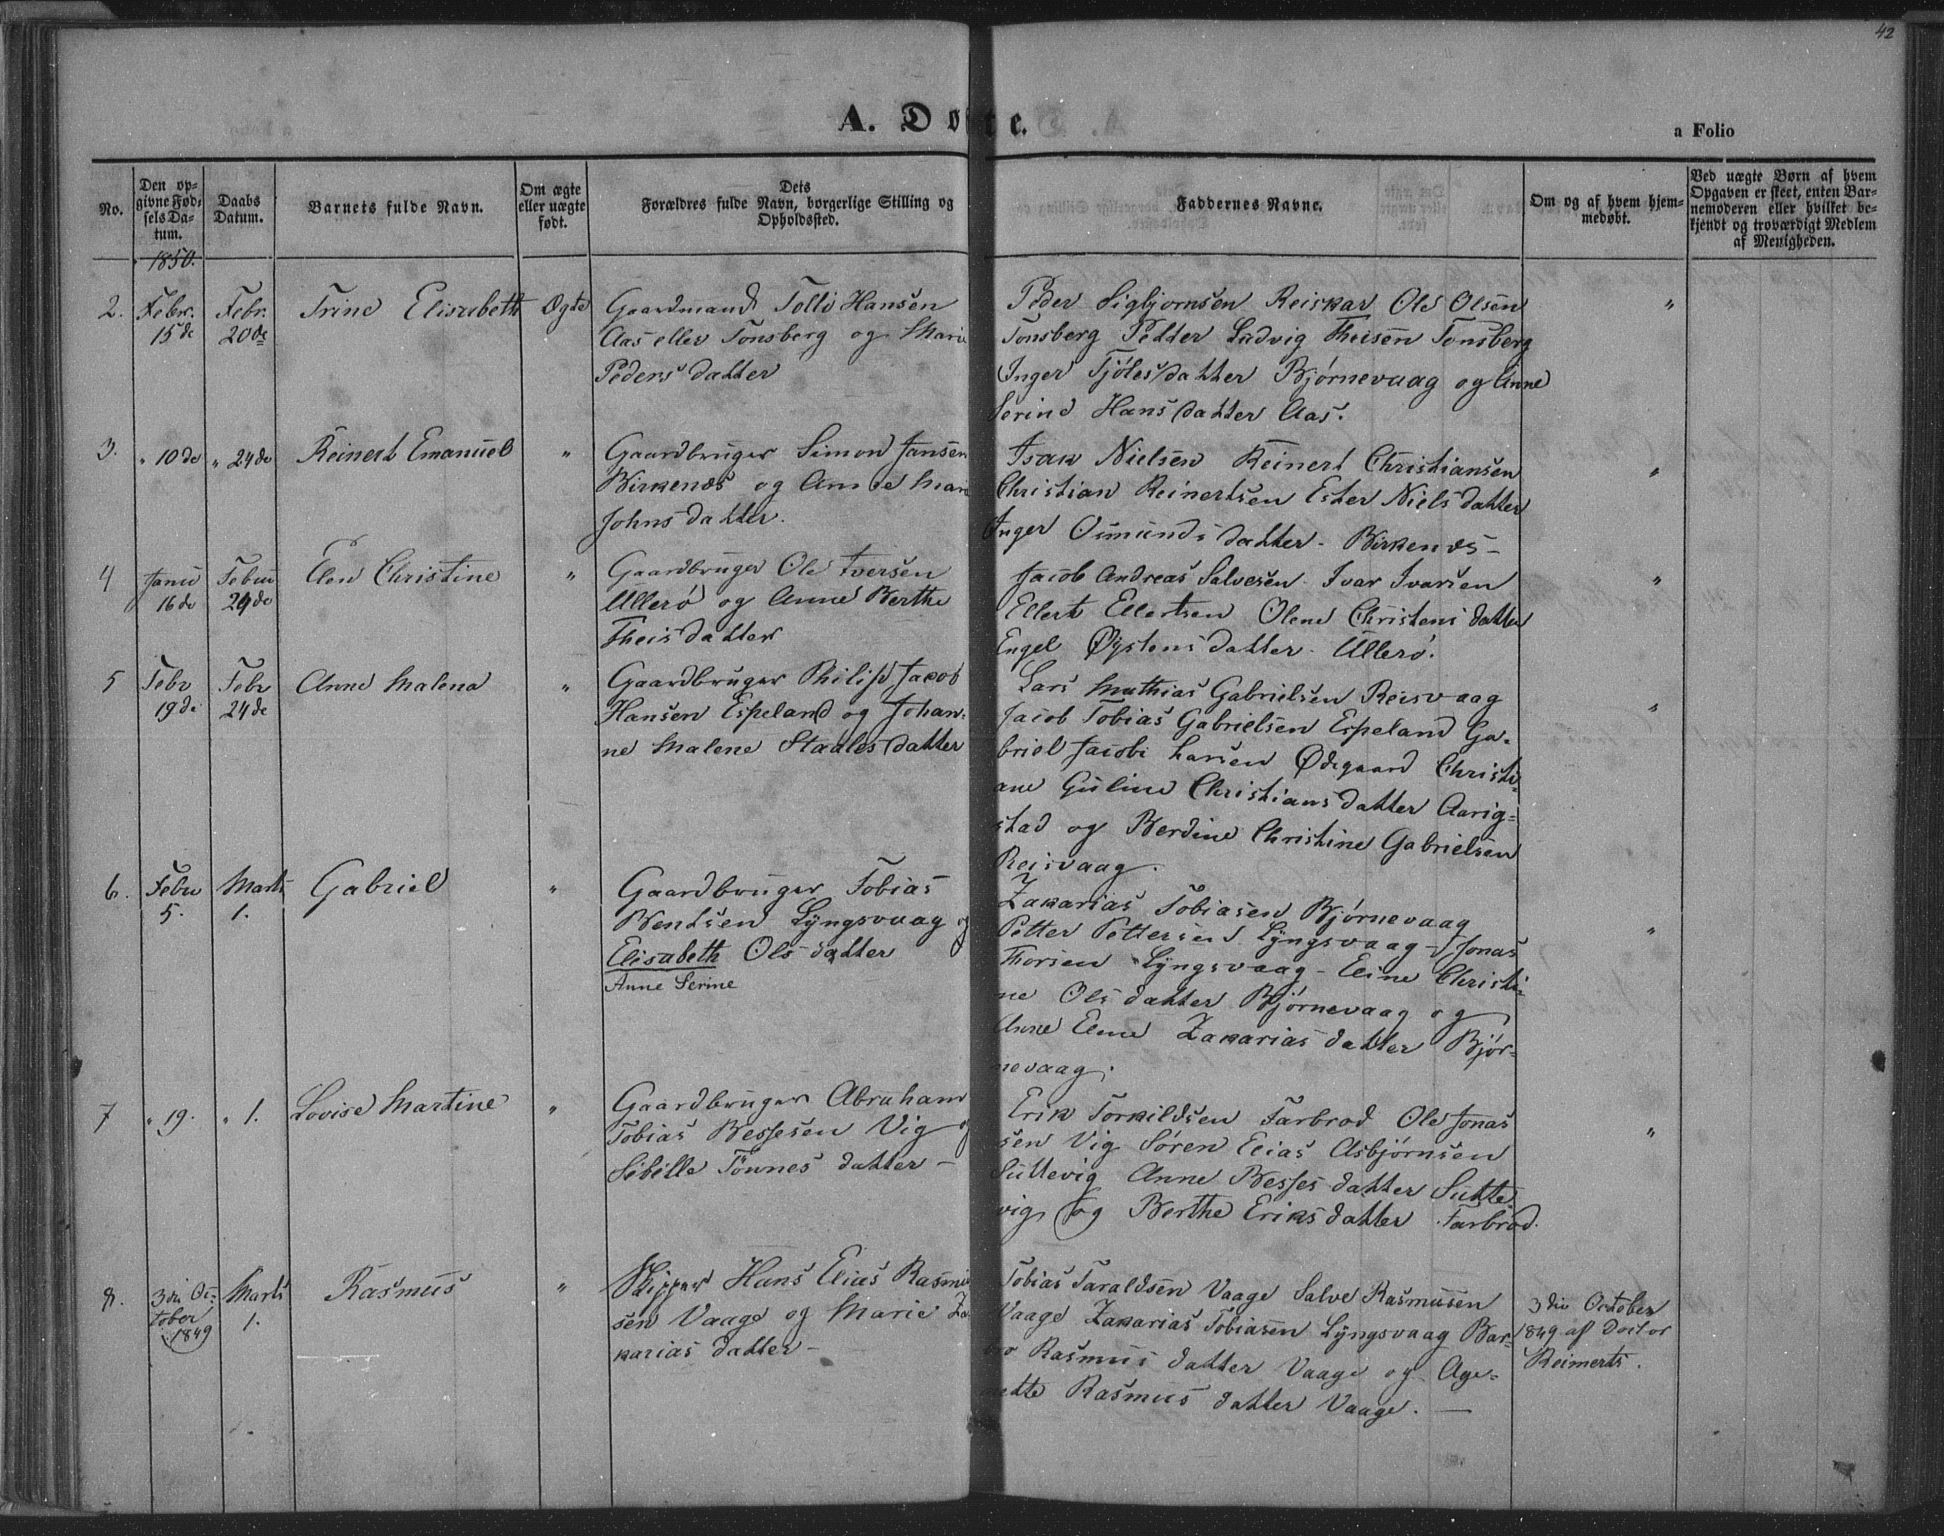 42
A. Døbte.
a Folio
No.
Den op-
givne Fød-
sels Da-
tum.
Daabs
Datum.
Barnets fulde Navn.
Om ægte
eller uægte
født.
Dets
Forældres fulde Navn, borgerlige Stilling og
Opholdssted.
Faddernes Navne.
Om og af hvem hjem-
medøbt.
Ved uægte Børn af hvem
Opgaven er skeet, enten Bar-
nemoderen eller hvilket be-
kjendt og troværdigt Medlem
af Menigheden.
1850.
2. Febr. 15de
Febr. 20de
Trine Elisabeth
Ægte
Gaardmand Tollo Hansen
Aas eller Tonsberg og Marie
Peders datter
Peder Sigbjornsen Reiskar Ole Olsen
Tonsberg Pedder Ludvig Theisen Tonsberg
Inger Tjöles datter Bjørnevaag og Anne
Serine Hans datter Aas.
"
3. " 10de
" 24de
Reinert Emanuel
"
Gaardbruger Simon Jansen
Birkenæs og Anne Marie
Johns datter.
Isak Nielsen Reinert Christiansen
Christian Reinertsen Ester Niels datter
Inger Osmunds datter - Birkenæs -
"
4 Janu 16de
Febru 24de
Elen Christine
"
Gaardbruger Ole Iversen
Ullerø og Anne Berthe
Theis datter
Jacob Andreas Salvesen - Ivar Ivarsen
Ellert Ellertsen Olene Christens datter
Engel Øystens datter - Ullerø.
"
5 Febr 19de
Febr 24de
Anne Malena
"
Gaardbruger Philip Jacob
Hansen Espeland og Johan-
ne Malene Staales datter
Lars Mathias Gabrielsen Reisvaag
Jacob Tobias Gabrielsen Espeland Ga-
briel Jacobi Larsen Ødegaard Christi-
ane Guline Christians datter Aarig-
stad og Berdine Christine Gabrielsen
Reisvaag.
"
6. Febru 5.
Marti 1.
Gabriel
"
Gaardbruger Tobias
Bentsen Lyngsvaag og
Elisabeth Ols datter
Anne Serine
Zakarias Tobiasen Bjørnevaag
Petter Pettersen Lyngsvaag - Jonas
Thorsen Lyngsvaag - Eline Christi-
ne Ols datter Bjørnevaag og
Anne Elene Zakarias datter Bjør-
nevaag.
"
7 " 19.
" 1.
Lovise Martine
"
Gaardbruger Abraham
Tobias Bessesen Vig og
Sibille Tönnes datter -
Erik Torkildsen Farbrod Ole Jonas
sen Vig Søren Elias Asbjørnsen
Suttevig Anne Besses datter Sutte
vig og Berthe Eriks datter Farbrod.
"
8. 3die Oc-
tober
1849
Marti
1.
Rasmus
"
Skipper Hans Elias Rasmu
sen Vaage og Marie Za
karias datter -
Tobias Taraldsen Vaage Salve Rasmusen
Vaage Zakarias Tobiasen Lyngsvaag Bar-
bro Rasmus datter Vaage og Age-
nette Rasmus datter Vaage. -
3die October
1849 af Doctor
Reimerts.